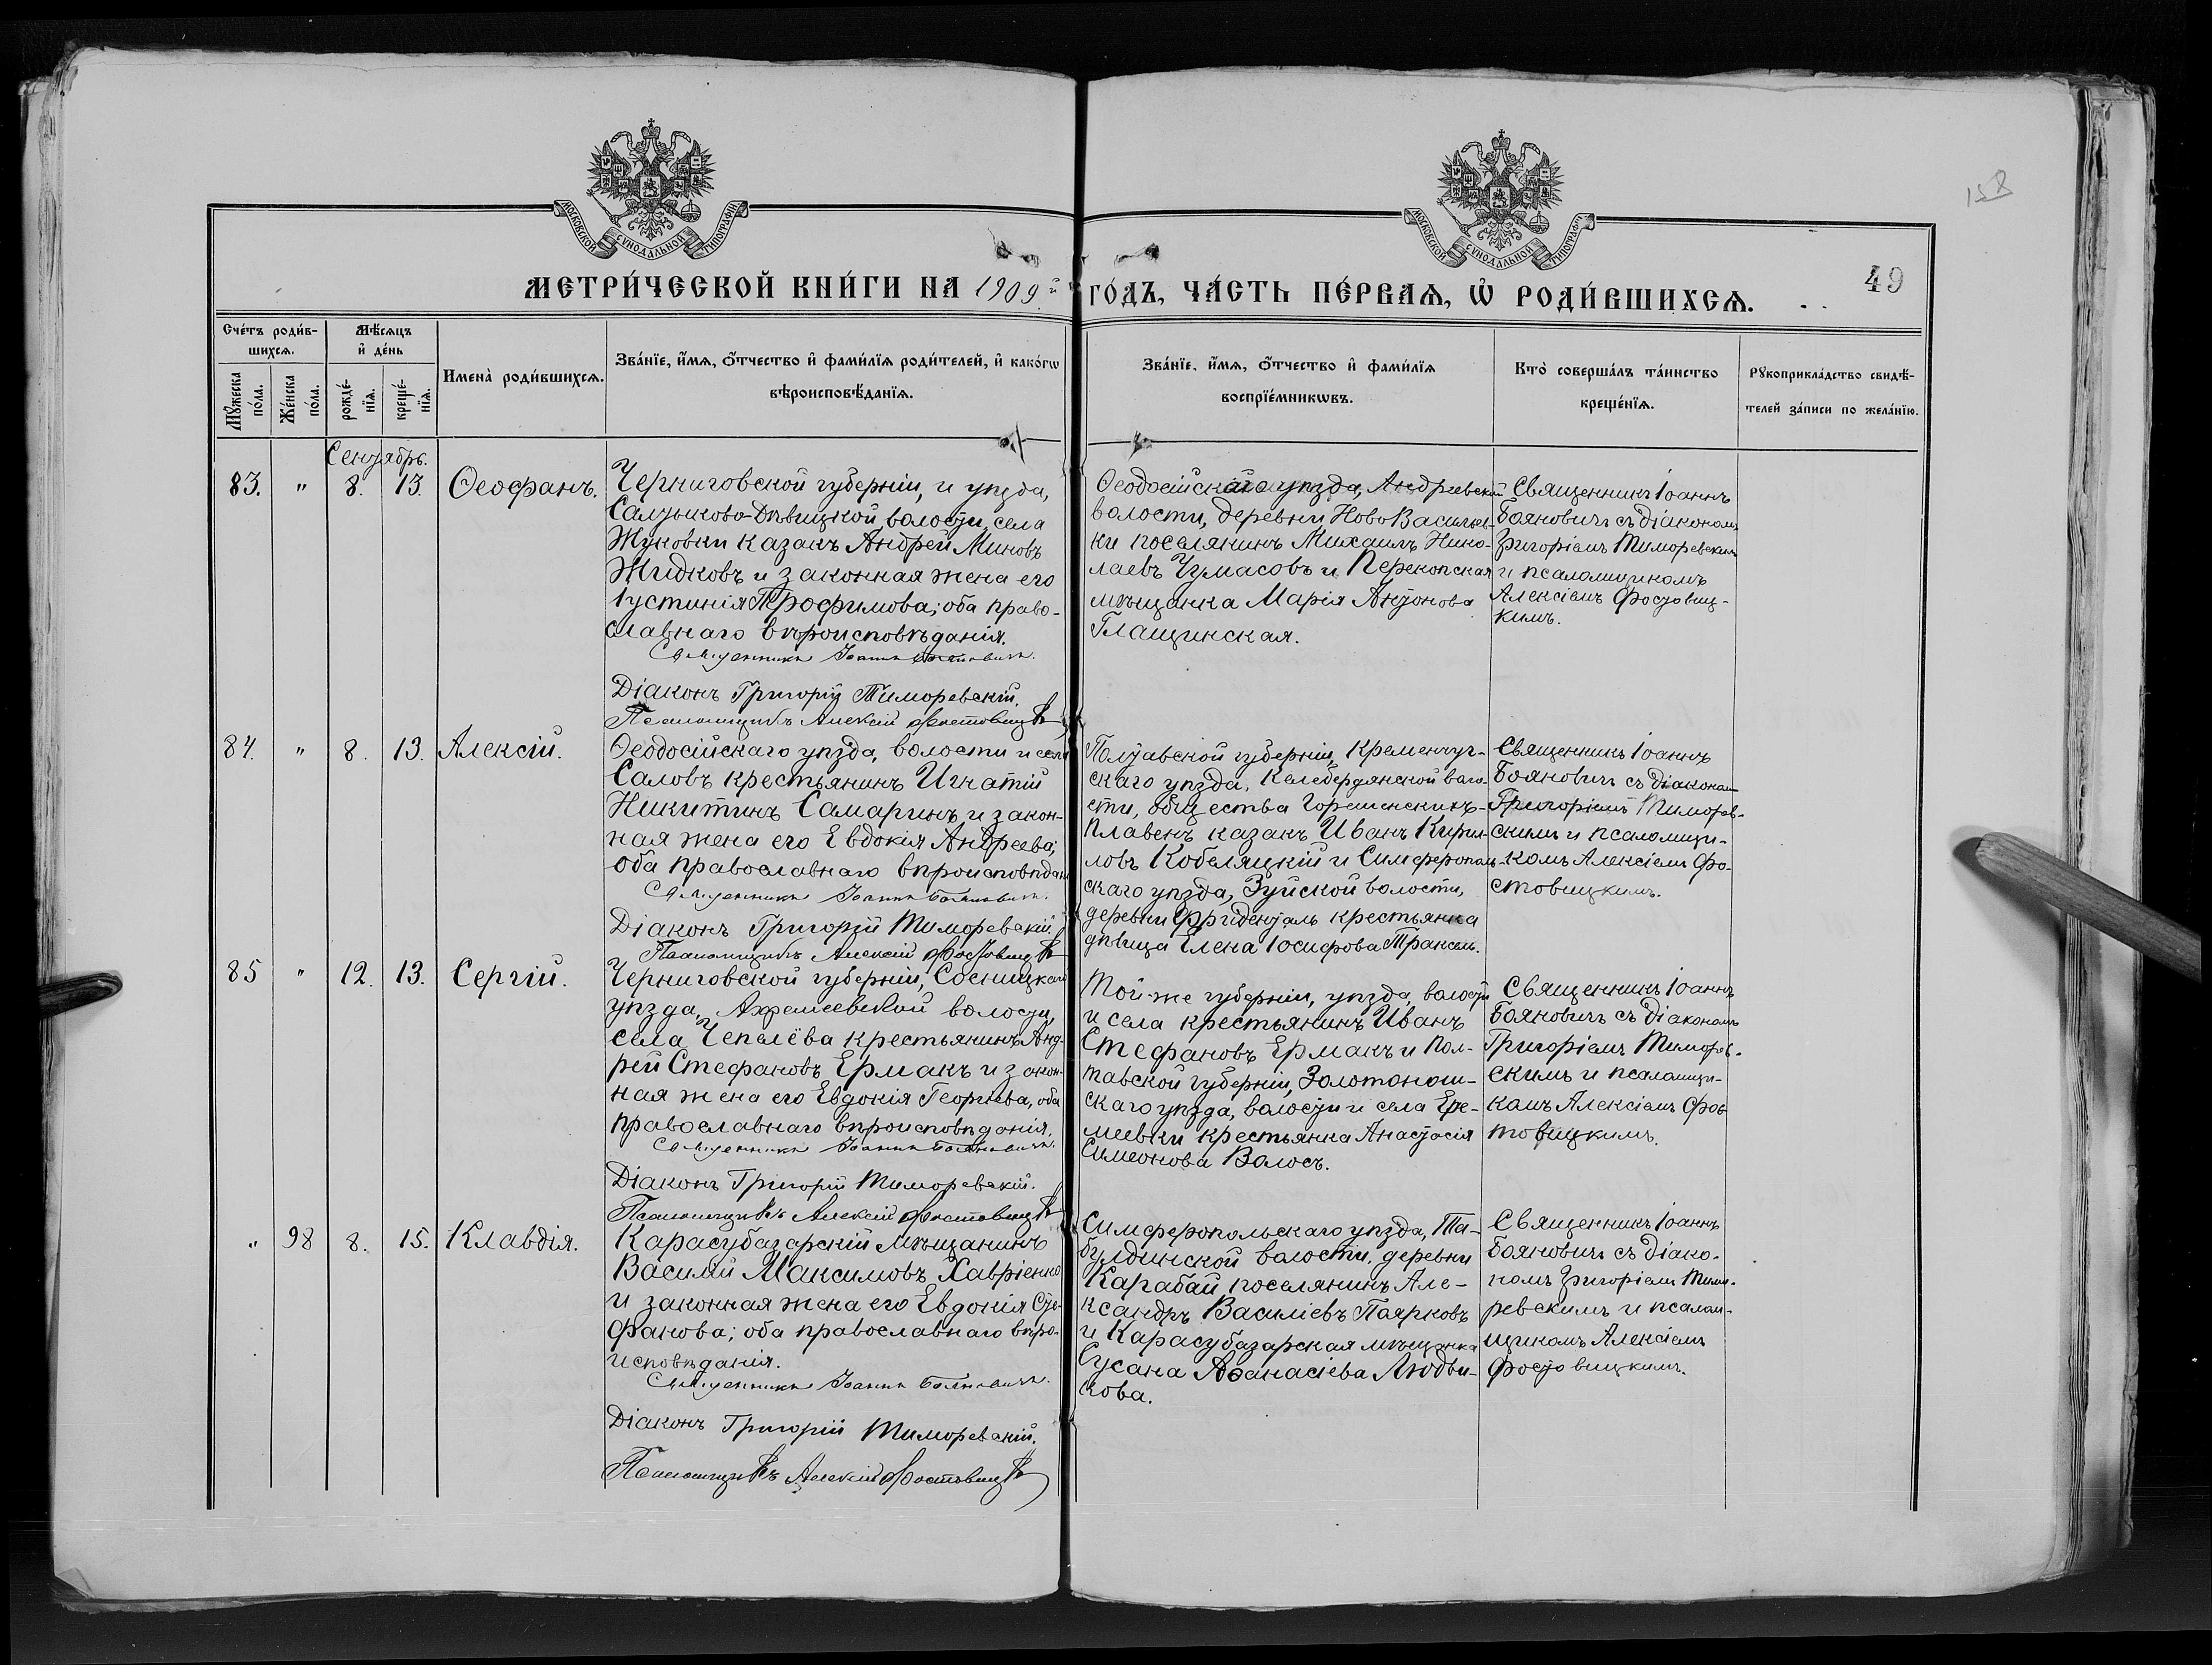 158
МОСКОВСКОЙ СѴНОДАЛЬНОЙ ТИПОГРАФІИ
МОСКОВСКОЙ СѴНОДАЛЬНОЙ ТИПОГРАФІИ
МЕТРИ́ЧЕСКОЙ КНИ́ГИ НА 1909й ГО́ДЪ, ЧА́СТЬ ПЕ́РВАѦ, Ѡ҆ РОДИ́ВШИХСѦ.
49
Сче́тъ роди́в-
шихсѧ.
Мꙋ́жеска по́ла.
Же́нска по́ла.
Мѣ́сѧцъ
и҆ де́нь
рожде́-
нїѧ.
креще́-
нїѧ.
Имена̀ роди́вшихсѧ.
Зва́нїе, и҆́мѧ, ѻ҆́тчество и҆ фами́лїѧ роди́телей, и҆ како́гѡ
вѣроисповѣ́данїѧ.
Зва́нїе, и҆́мѧ, ѻ҆́тчество и҆ фами́лїѧ
воспрїе́мникѡвъ.
Кто̀ соверша́лъ та́инство
креще́нїѧ.
Рꙋкоприкла́дство свидѣ́-
телей за́писи по жела́нїю.
Сентябрь.
83. " 8. 13. Ѳеофанъ.
Черниговской губерніи, и уѣзда,
Салтыково-Дѣвицкой волости, села
Жуковки казакъ Андрей Миновъ
Жидковъ и законная жена его
Іустинія Трофимова; оба право-
славнаго вѣроисповѣданія.
Священникъ Іоаннъ Бояновичъ.
Діаконъ Григорій Тиморевскій.
Псаломщикъ Алексій Фостовицкій
Ѳеодосійскаго уѣзда, Андреевской
волости, деревни НовоВасильев-
ки поселянинъ Михаилъ Нико-
лаевъ Чумасовъ и Перекопская
мѣщанка Марія Антонова
Глащинская.
Священникъ Іоаннъ
Бояновичъ съ діакономъ
Григоріемъ Тиморевскимъ
и псаломщикомъ
Алексіемъ Фостовиц-
кимъ.
84. " 8. 13. Алексій.
Ѳеодосійскаго уѣзда, волости и села
Саловъ крестьянинъ Игнатій
Никитинъ Самаринъ и закон-
ная жена его Евдокія Андреева;
оба православнаго вѣроисповѣдан
Священникъ Іоаннъ Бояновичъ.
Діаконъ Григорій Тиморевскій
Псаломщикъ Алексій Фостовицкій
Полтавской губерніи, Кременчуг-
скаго уѣзда, Келебердянской воло-
сти, общества Горишенскихъ-
Плавень казакъ Иванъ Кирил-
ловъ Кобеляцкій и Симферополь-
скаго уѣзда, Зуйской волости,
деревни Фриденталь крестьянка
дѣвица Елена Іосифова
Священникъ Іоаннъ
Бояновичъ съ діакономъ
Григоріемъ Тиморев-
скимъ и псаломщи-
комъ Алексіемъ Фо-
стовицкимъ.
85 " 12. 13. Сергій.
Черниговской губерніи, Сосницкаго
уѣзда, волости,
села Чепелёва крестьянинъ Анд-
рей Стефановъ Ермакъ и закон-
ная жена его Евдокія Георгіева, оба
православнаго вѣроисповѣданія.
Священникъ Іоаннъ Бояновичъ.
Діаконъ Григорій Тиморевскій.
Псаломщикъ Алексій Фостовицкій
Той-же губерніи, уѣзда, волости
и села крестьянинъ Иванъ
Стефановъ Ермакъ и Пол-
тавской губерніи, Золотонош-
скаго уѣзда, волости и села Ере-
меевки крестьянка Анастасія
Симеонова Волосъ.
Священникъ Іоаннъ
Бояновичъ съ діакономъ
Григоріемъ Тиморев-
скимъ и псаломщи-
комъ Алексіемъ Фос-
товицкимъ.
" 98 8. 15. Клавдія.
Карасубазарскій мѣщанинъ
Василій Максимовъ Хавріенко
и законная жена его Евдокія Сте-
фанова; оба православнаго вѣро-
исповѣданія.
Священникъ Іоаннъ Бояновичъ.
Діаконъ Григорій Тиморевскій.
Псаломщикъ Алексій Фостовицкій
Симферопольскаго уѣзда, Та-
булдинской волости, деревни
Карабай поселянинъ Але-
ксандръ Василіевъ Паярковъ
и Карасубазарская мѣщанка
Сусана Аѳанасіева Любви-
кова.
Священникъ Іоаннъ
Бояновичъ съ діако-
номъ Григоріемъ Тимо-
ревскимъ и псалом-
щикомъ Алексіемъ
Фостовицкимъ.